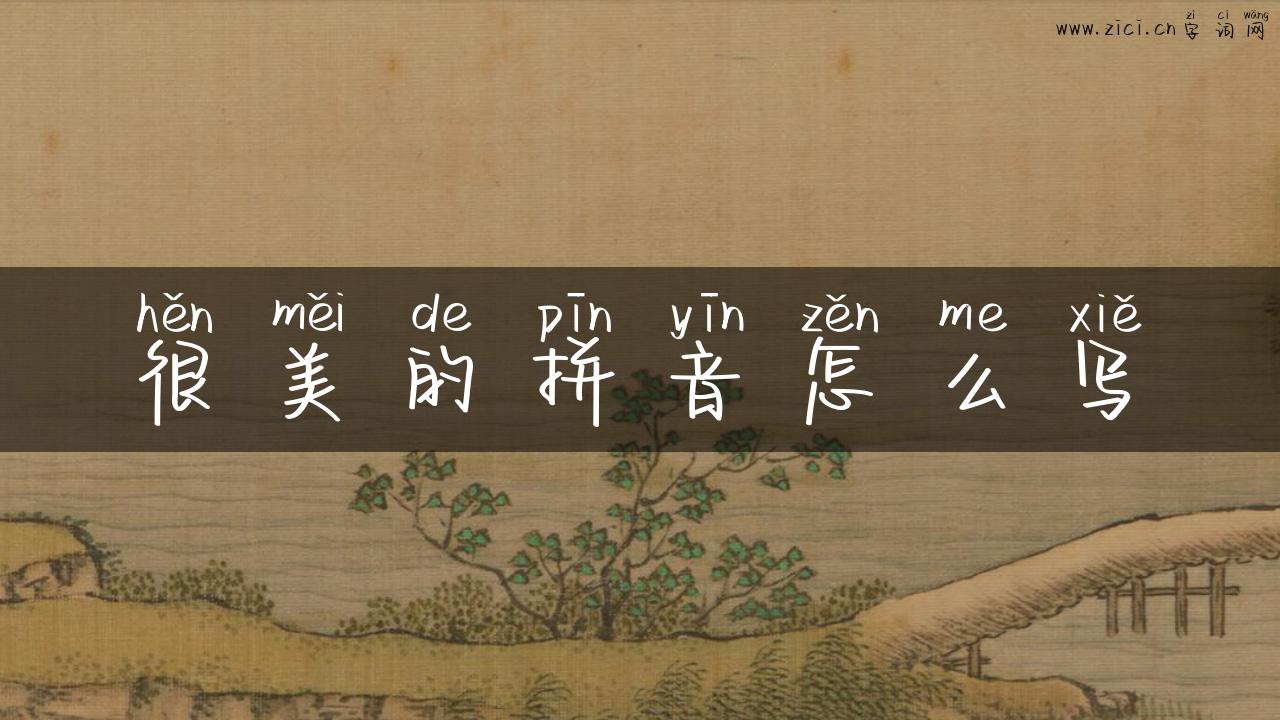 zì cí wǎng
www.zici.cn 字 词 网
hěn měi de pīn yīn zěn me xiě
很 美 的 拼 音 怎 么 写